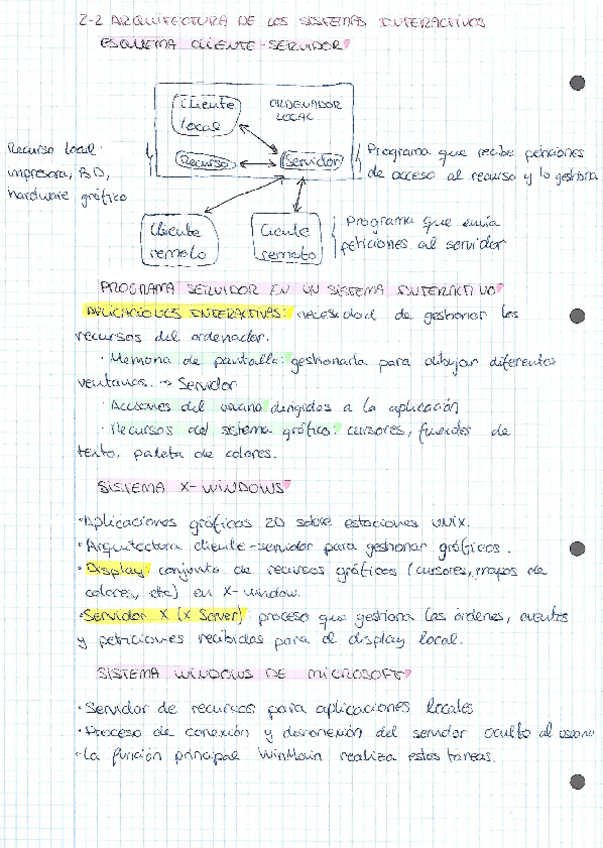 2-2 ARQUITECTURA DE LOS SISTEMAS INTERACTIVOS
ESQUEMA CLIENTE-SERVIDOR
Cliente local
ORDENADOR LOCAL
Recurso
Servidor
Recurso local:
impresora, BD,
hardware gráfico
Programa que recibe peticiones
de acceso al recurso y lo gestiona
Cliente remoto
Ciente remoto
Programa que envía
peticiones al servidor
PROGRAMA SERVIDOR EN UN SISTEMA INTERACTIVO
APLICACIONES INTERACTIVAS: necesidad de gestionar los
recursos del ordenador.
· Memoria de pantalla: gestionarla para dibujar diferentes
ventanas. → Servidor
· Acciones del usuario dirigidos a la aplicación
· Recursos del sistema gráfico: cursores, fuentes de
texto, paleta de colores.
SISTEMA X-WINDOWS
· Aplicaciones gráficas 2D sobre estaciones UNIX.
· Arquitectura cliente-servidor para gestionar gráficos.
· Display: conjunto de recursos gráficos (cursores, mapas de
colores, etc) en X-window.
· Servidor X (X Server): proceso que gestiona las órdenes, eventos
y peticiones recibidas para el display local.
SISTEMA WINDOWS DE MICROSOFT
· Servidor de recursos para aplicaciones locales
· Proceso de conexión y desconexión del servidor oculto al usuario
· La función principal WinMain realiza estas tareas.